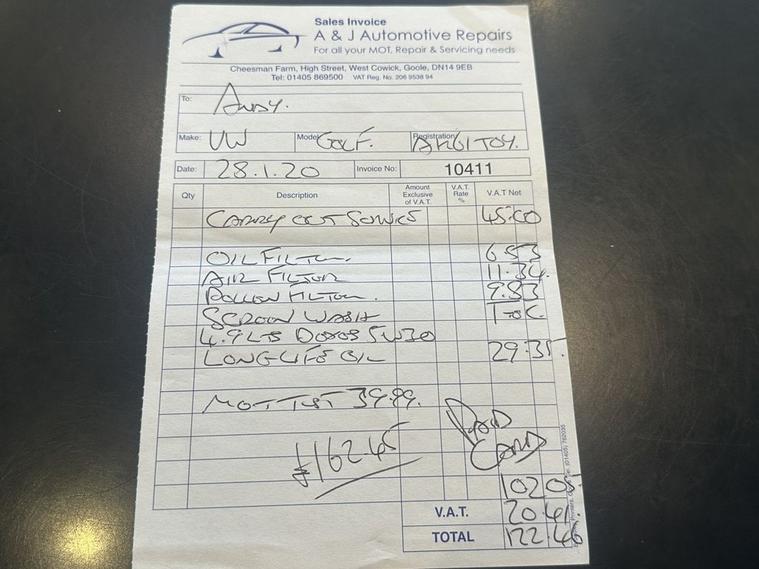 Sales Invoice
A & J Automotive Repairs
For all your MOT, Repair & Servicing needs
Cheesman Farm, High Street, West Cowick, Goole, DN14 9EB
Tel: 01405 869500 VAT Reg. No. 206 9538 94
To: ANDY.
Make: VW Model: GOLF. Registration:
Date: 28.1.20 Invoice No: 10411
Qty Description Amount Exclusive of V.A.T. V.A.T. Rate % V.A.T Net
CARRY OUT 45.00
OIL FILTER. 6.53
AIR FILTER 11.34
POLLEN FILTER. 9.83
SCREEN WASH
4.9 LTS 5W30
LONGLIFE OIL 29.35.
MOT TEST 39.99.
PAID
£162.45 CARD
102 05.
V.A.T. 20 41.
TOTAL 122 46